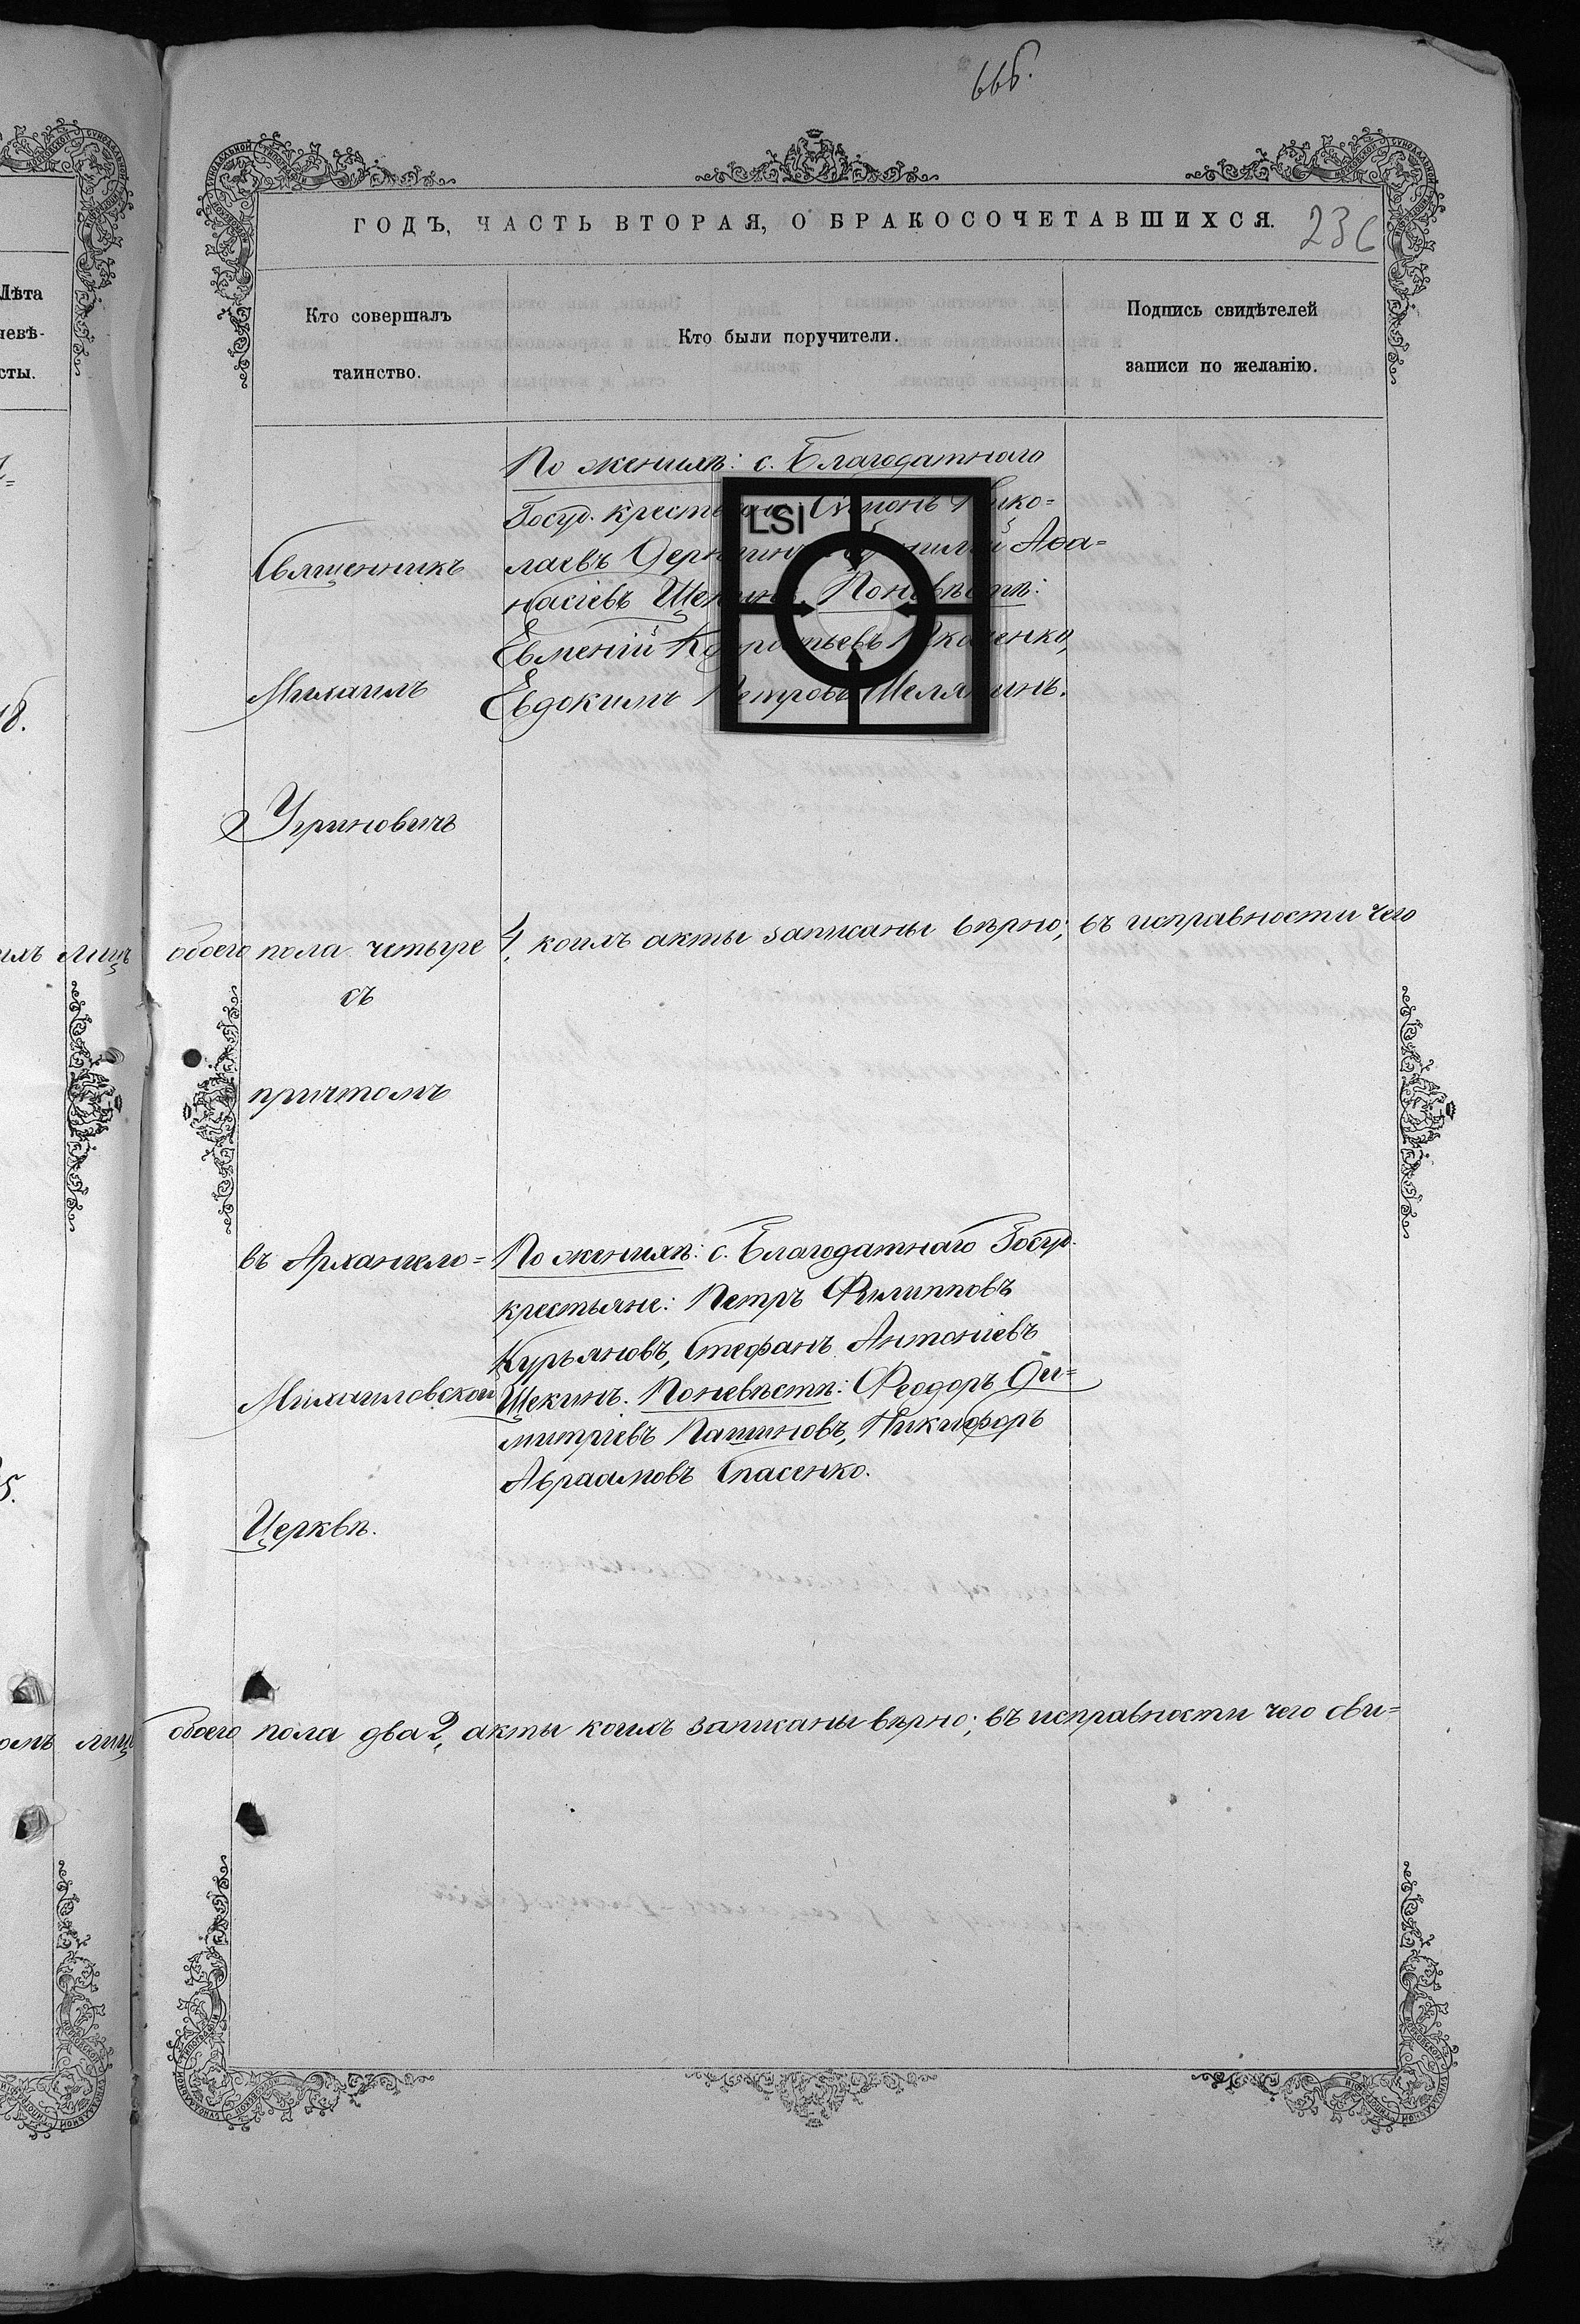 666.
ГОДЪ, ЧАСТЬ ВТОРАЯ, О БРАКОСОЧЕТАВШИХСЯ.
236
Лѣта
невѣ-
сты.
Кто совершалъ
таинство.
Кто были поручители.
Подпись свидѣтелей
записи по желанію.
По женихѣ: с. Благодатнаго
Госуд. Симонъ Нико=
лаевъ Аѳа=
насіевъ По невѣстѣ:
Евменій
Евдокимъ Петровъ
LSI
Священникъ
Михаилъ
Угриновичъ
съ
причтомъ
въ Архангело=
Михаиловской
Церквѣ.
18.
лицъ обоего пола четыре 4, коихъ акты записаны вѣрно; въ исправности чего
По женихѣ: с. Благодатнаго Госуд.
крестьяне: Петръ Филипповъ
Курьяновъ, Стефанъ Антоніевъ
Щекинъ. По невѣстѣ: Феодоръ Ди=
митріевъ Пашиновъ, Никифоръ
Авраамовъ Спасенко.
5.
лицъ обоего пола два 2, акты коихъ записаны вѣрно; въ исправности чего сви=